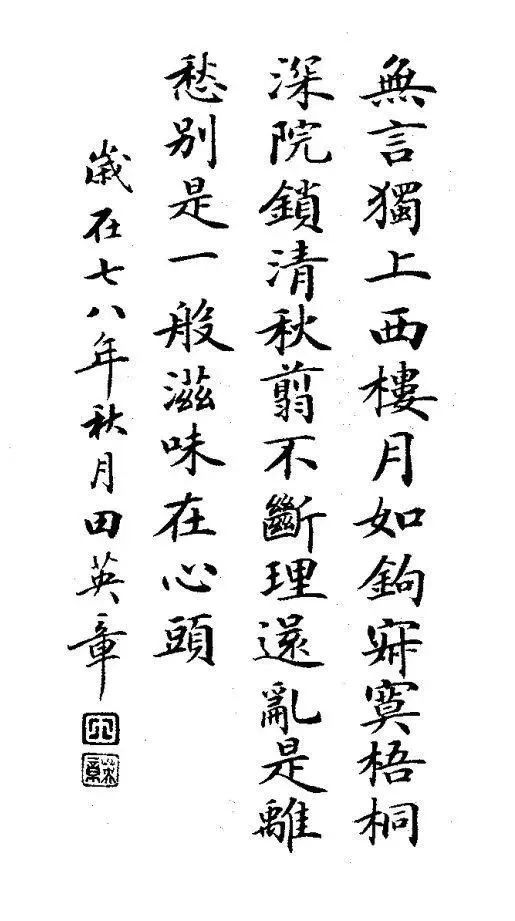 無言獨上西樓月如鉤寂寞梧桐
深院鎖清秋翦不斷理還亂是離
愁別是一般滋味在心頭
歲在七八年秋月田英章
田
英章